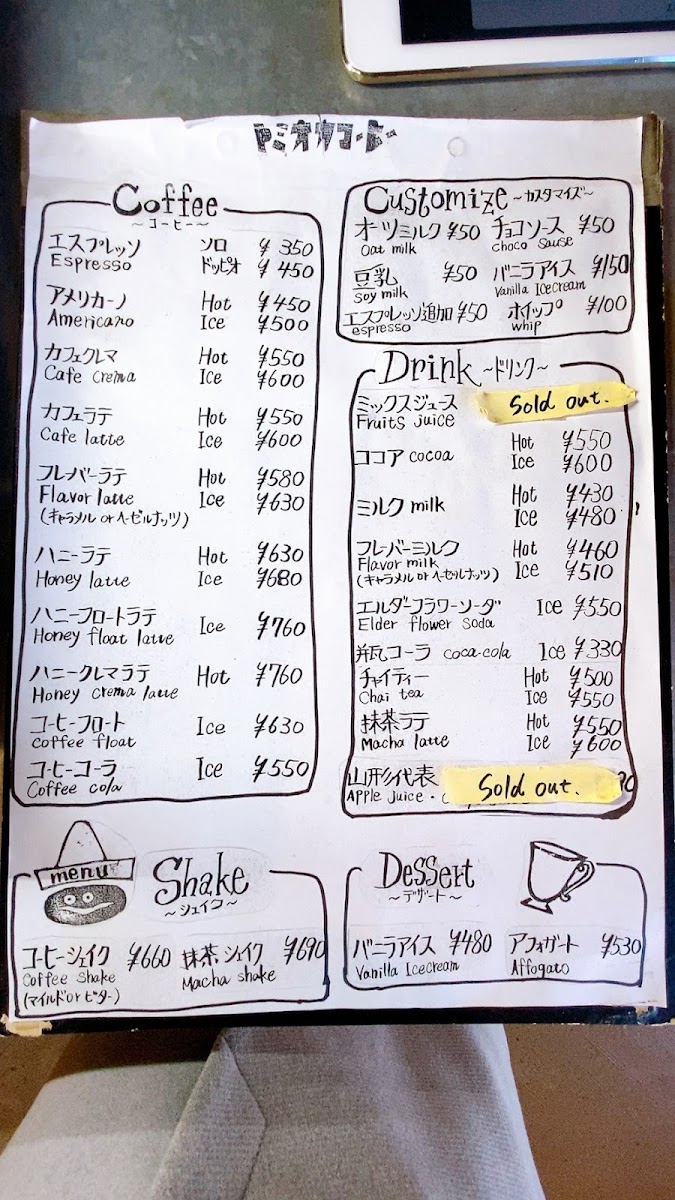 アミオカコーヒー
Coffee
～コーヒー～
エスプレッソ ソロ ¥350
Espresso ドッピオ ¥450
アメリカーノ Hot ¥450
Americano Ice ¥500
カフェクレマ Hot ¥550
Cafe crema Ice ¥600
カフェラテ Hot ¥550
Cafe latte Ice ¥600
フレーバーラテ Hot ¥580
Flavor latte Ice ¥630
(キャラメル or ヘーゼルナッツ)
ハニーラテ Hot ¥630
Honey latte Ice ¥680
ハニーフロートラテ Ice ¥760
Honey float latte
ハニークレマラテ Hot ¥760
Honey crema latte
コーヒーフロート Ice ¥630
Coffee float
コーヒーコーラ Ice ¥550
Coffee cola
Customize ～カスタマイズ～
オーツミルク ¥50 チョコソース ¥50
Oat milk choco Sause
豆乳 ¥50 バニラアイス ¥150
Soy milk Vanilla Icecream
エスプレッソ追加 ¥50 ホイップ ¥100
espresso whip
Drink ～ドリンク～
ミックスジュース Sold out.
Fruits juice
ココア cocoa Hot ¥550
Ice ¥600
ミルク milk Hot ¥430
Ice ¥480
フレーバーミルク Hot ¥460
Flavor milk
(キャラメル or ヘーゼルナッツ) Ice ¥510
エルダーフラワーソーダ Ice ¥550
Elder flower soda
瓶コーラ coca-cola Ice ¥330
チャイティー Hot ¥500
Chai tea Ice ¥550
抹茶ラテ Hot ¥550
Macha latte Ice ¥600
山形代表 Sold out.
Apple juice
menu
Shake
～シェイク～
コーヒーシェイク ¥660 抹茶シェイク ¥690
Coffee shake Macha shake
(マイルド or ビター)
Dessert
～デザート～
バニラアイス ¥480 アフォガート ¥530
Vanilla Icecream Affogato